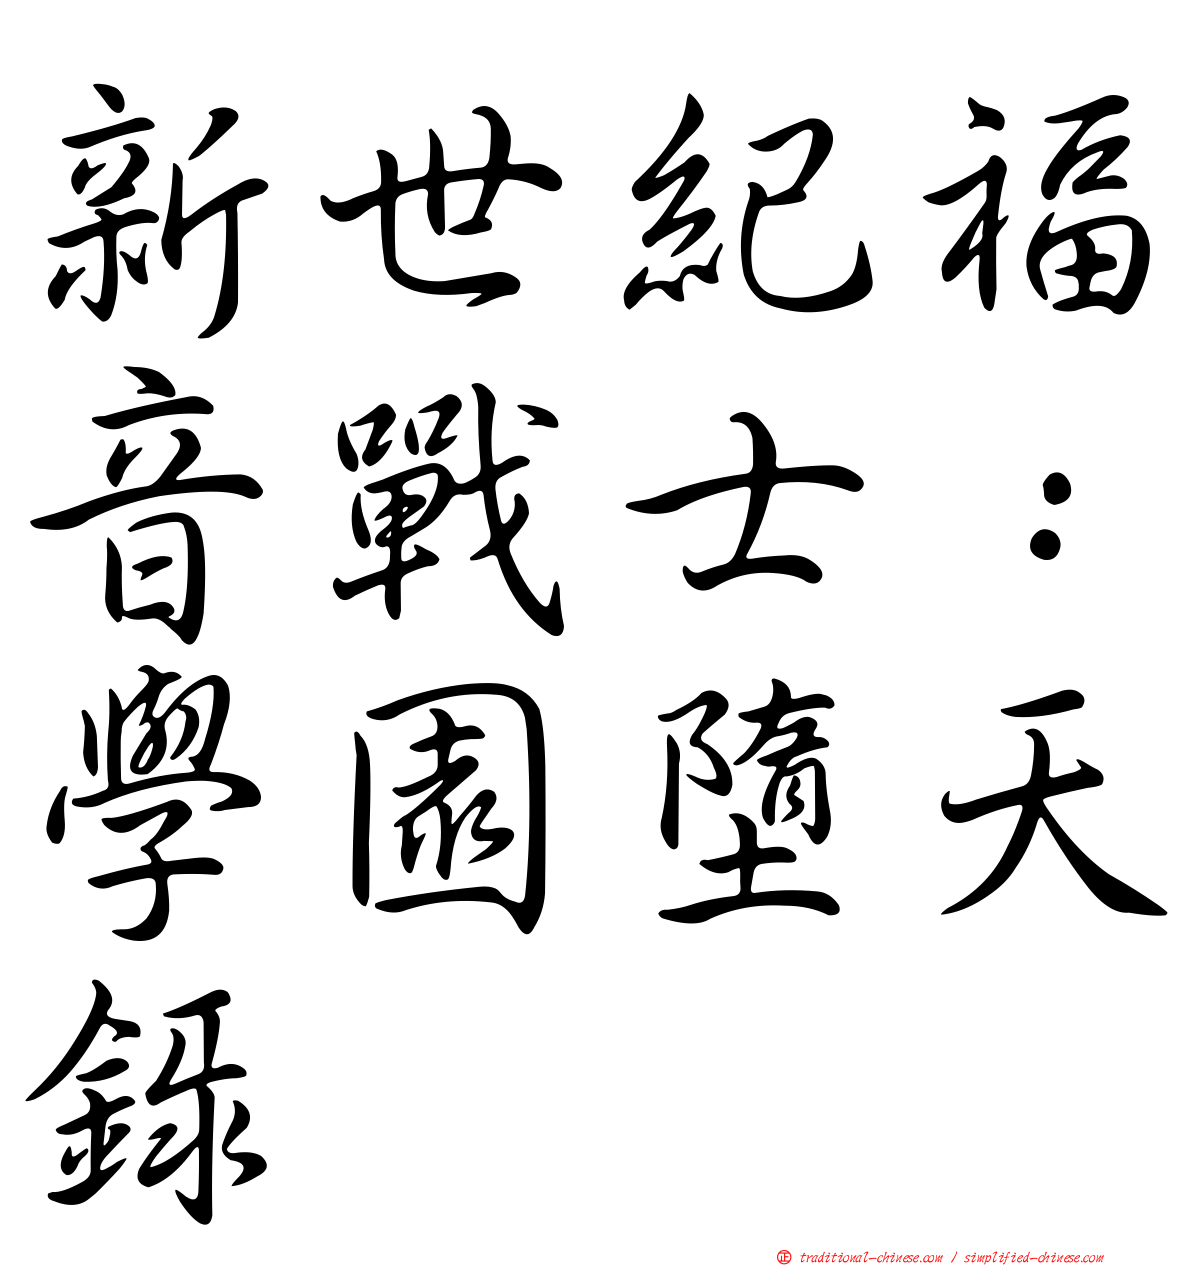 新世紀福
音戰士：
學園墮天
錄
正 traditional-chinese.com / simplified-chinese.com